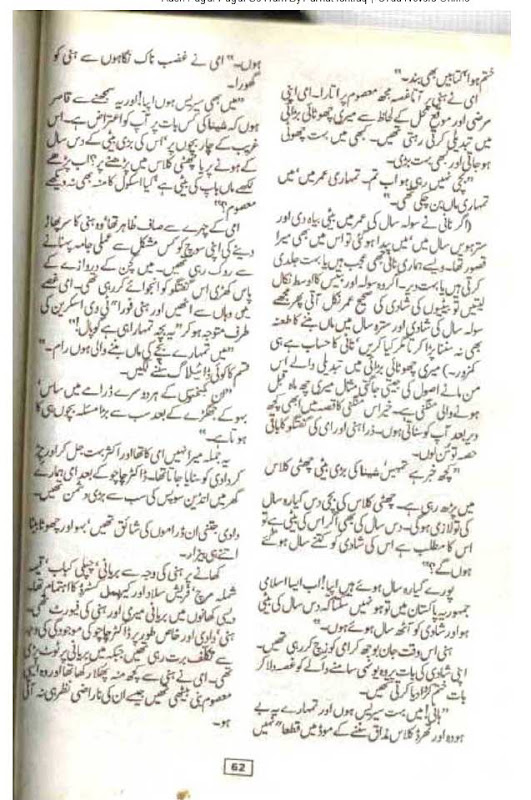 ختم ہوا' کتابیں بھی بند۔"
امی نے ہنی پر آتا غصہ مجھ معصوم پر اتارا۔ امی اپنی
مرضی اور موقع محل کے لحاظ سے میری چھوٹائی بڑائی
میں تبدیلی کرتی رہتی تھیں۔ کبھی میں بہت چھوٹی
ہو جاتی اور کبھی بہت بڑی۔
"بچی نہیں رہی ہو اب تم۔ تمہاری عمر میں' میں
تمہاری ماں بن چکی تھی۔"
(اگر نانی نے سولہ سال کی عمر میں بیٹی بیاہ دی اور
سترہویں سال میں' میں پیدا ہو گئی تو اس میں بھی میرا
قصور تھا۔ ویسے ہماری نانی بھی عجیب ہیں یا بہت جلدی
کرتی ہیں یا بہت دیر۔ اگر وہ سولہ اور بتیس کا اوسط نکال
لیتیں تو بیٹیوں کی شادی کی صحیح عمر نکل آتی پھر مجھے
سولہ سال کی شادی اور سترہ سال میں ماں بننے کا طعنہ
بھی نہ سننا پڑا کرتا مگر کیا کریں' نانی کا حساب ہے ہی
کمزور۔) میری چھوٹائی بڑائی میں تبدیلی والے اس
من مانے اصول کی جیتی جاگتی مثال میری چھ ماہ قبل
ہونے والی منگنی ہے۔ خیر اس منگنی کا قصہ میں ابھی کچھ
دیر بعد آپ کو سناتی ہوں۔ ذرا ہنی اور امی کی گفتگو کا باقی
حصہ تو سن لوں۔
"کچھ خبر ہے تمہیں' شیٹا کی بڑی بیٹی چھٹی کلاس
میں پڑھ رہی ہے۔ چھٹی کلاس کی بچی دس گیارہ سال
کی تو لازمی ہو گی۔ دس سال کی بھی اگر اس کی بیٹی ہے تو
اس کا مطلب ہے اس کی شادی کو کتنے سال ہو گئے
ہوں گے؟"
پورے گیارہ سال ہوئے ہیں اپیا! اب ایسا اسلامی
جمہوریہ پاکستان میں تو ہو نہیں سکتا کہ دس سال کی بیٹی
ہو اور شادی کو آٹھ سال ہوئے ہوں۔"
ہنی اس وقت جان بوجھ کر امی کو زچ کر رہی تھیں۔
اپنی شادی کی بات پر وہ یونہی سامنے والے کو غصہ دلا کر
بات ختم کروا دیا کرتی تھیں۔
"ہانی! میں بہت سیریس ہوں اور تمہارے یہ بے
ہودہ اور تھرڈ کلاس مذاق سننے کے موڈ میں قطعاً" نہیں
ہوں۔" امی نے غضب ناک نگاہوں سے ہنی کو
گھورا۔
"میں بھی سیریس ہوں اپیا! اور یہ سمجھنے سے قاصر
ہوں کہ شیٹا کی کس بات پر آپ کو اعتراض ہے۔ اس
غریب کے چار بچوں پر' اس کی بڑی بیٹی کے دس سال
کے ہونے پر یا چھٹی کلاس میں پڑھنے پر؟ اب پڑھے
لکھے ماں باپ کی بیٹی ہے' کیا اسکول کا منہ بھی نہ دیکھے
معصوم؟"
امی کے چہرے سے صاف ظاہر تھا' وہ ہنی کا سر پھاڑ
دینے کی اپنی سوچ کو کس مشکل سے عملی جامہ پہنانے
سے روک رہی تھیں۔ میں کچن کے دروازے کے
پاس کھڑی اس گفتگو کو انجوائے کر رہی تھی۔ امی غصے
میں وہاں سے اٹھیں اور ہنی فوراً" ٹی وی اسکرین کی
طرف متوجہ ہو کر "یہ بچہ تمہارا ہی ہے گوپال!"
"میں تمہارے بچے کی ماں بننے والی ہوں رام۔"
قسم کا کوئی ڈائیلاگ سننے لگیں۔
"ان کمبختوں کے ہر دوسرے ڈرامے میں ساس'
بہو کے جھگڑے کے بعد سب سے بڑا مسئلہ بچوں ہی کا
ہوتا ہے۔"
یہ جملہ میرا نہیں امی کا تھا اور اکثر بہت جل کر اور چڑ
کر دادی کو سنایا جاتا تھا۔ ڈاکٹر چاچو کے بعد امی ہمارے
گھر میں انڈین سوپس کی سب سے بڑی دشمن تھیں۔
دادی جتنی ان ڈراموں کی شائق تھیں' بہو اور چھوٹا بیٹا
اتنے ہی بیزار۔
کھانے پر ہنی کی وجہ سے بریانی' چپلی کباب' قیمہ
شملہ مرچ' فریش سلاد اور کیریمل کسٹرڈ کا اہتمام تھا۔
دیسی کھانوں میں بریانی میری اور ہنی کی فیورٹ تھی۔
ہنی' دادی اور خاص طور پر ڈاکٹر چاچو کی موجودگی کی وجہ
سے تکلف برت رہی تھیں جبکہ میں بریانی پر ٹوٹ پڑی
تھی۔ امی نے ہنی سے کچھ منہ پھلا رکھا تھا اور وہ ایسی
معصوم بنی بیٹھی تھیں جیسے ان کی ناراضی نظر ہی نہ آئی
ہو۔
62